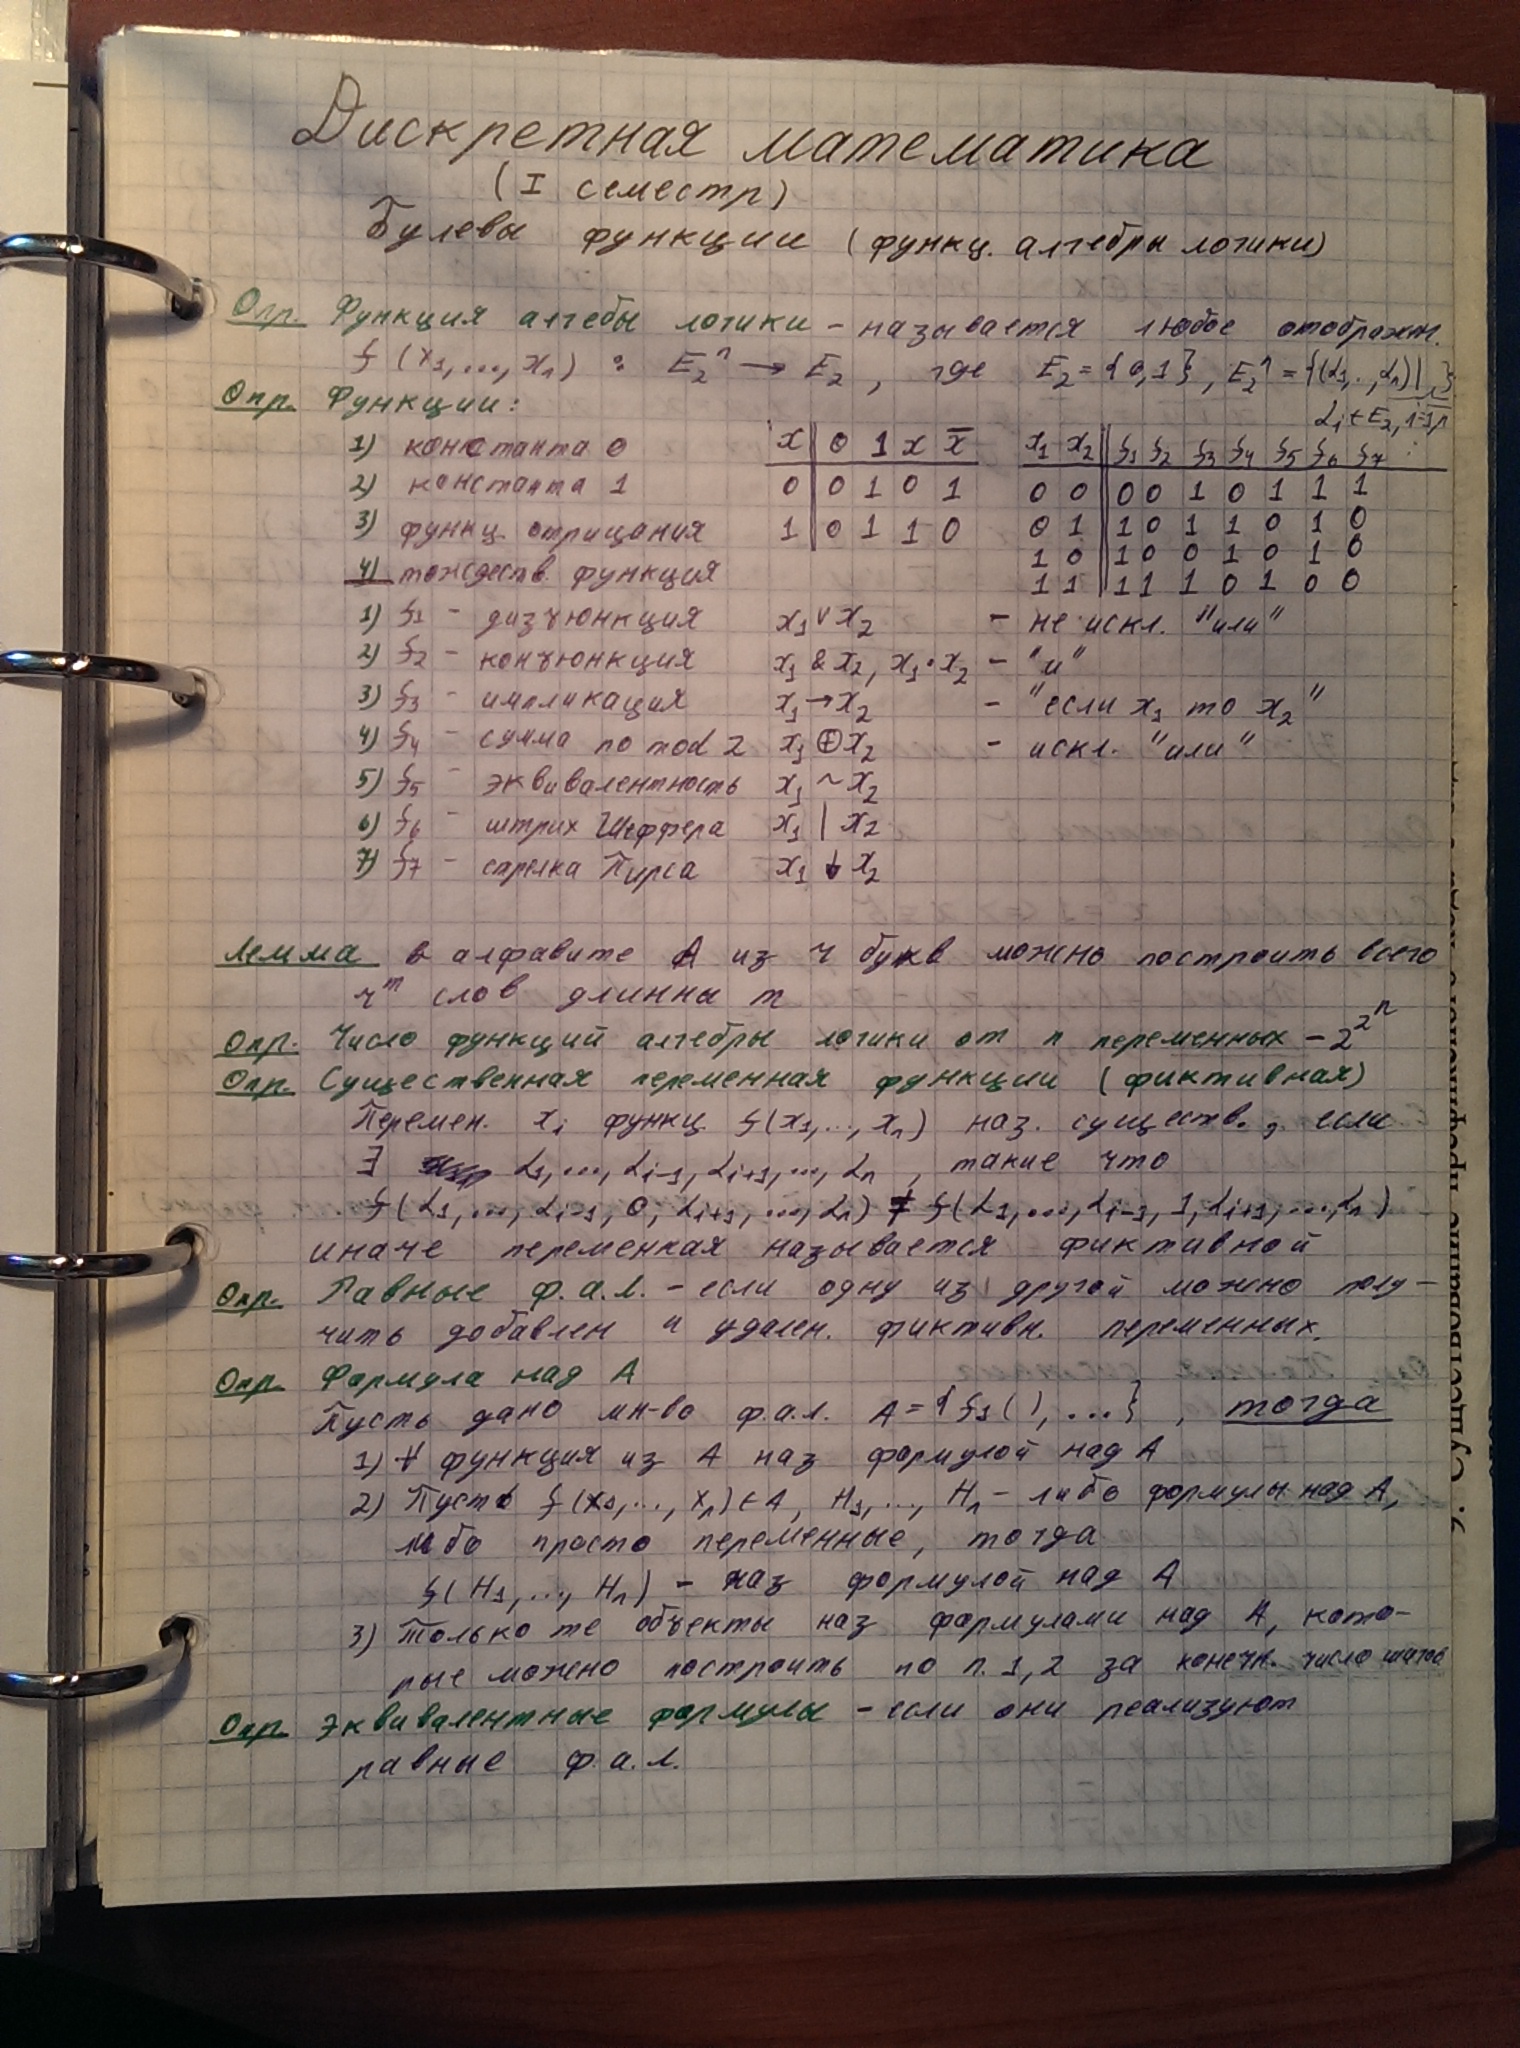 Дискретная математика
(I семестр)
Булевы функции (функц. алгебры логики)
Опр. Функция алгебы логики - называется любое отображен.
f(x₁,...,xₙ) : E₂ⁿ → E₂, где E₂={0,1}, E₂ⁿ={(α₁,..,αₙ)| }
αᵢ∈E₂, i=1,n
Опр. Функции:
1) константа 0
2) константа 1
3) функц. отрицания
4) тождеств. функция
x | 0 1 x x̅
0 | 0 1 0 1
1 | 0 1 1 0
x₁ x₂ || f₁ f₂ f₃ f₄ f₅ f₆ f₇
0 0 || 0 0 1 0 1 1 1
0 1 || 1 0 1 1 0 1 0
1 0 || 1 0 0 1 0 1 0
1 1 || 1 1 1 0 1 0 0
1) f₁ - дизъюнкция x₁ ∨ x₂ - не искл. "или"
2) f₂ - конъюнкция x₁ & x₂, x₁·x₂ - "и"
3) f₃ - импликация x₁→x₂ - "если x₁ то x₂"
4) f₄ - сумма по mod 2 x₁⊕x₂ - искл. "или"
5) f₅ - эквивалентность x₁ ~ x₂
6) f₆ - штрих Шеффера x₁ | x₂
7) f₇ - стрелка Пирса x₁ ↓ x₂
Лемма в алфавите A из ч букв можно построить всего
чᵐ слов длинны m
Опр. Число функций алгебры логики от n переменных - 2^2^n
Опр. Существенная переменная функции (фиктивная)
Перемен. xᵢ функц f(x₁,...,xₙ) наз. существ., если
∃ α₁,...,αᵢ₋₁,αᵢ₊₁,...,αₙ, такие что
f(α₁,...,αᵢ₋₁,0,αᵢ₊₁,...,αₙ) ≠ f(α₁,...,αᵢ₋₁,1,αᵢ₊₁,...,αₙ)
иначе переменная называется фиктивной
Опр. Равные ф.а.л. - если одну из другой можно полу-
чить добавлен и удален. фиктивн. переменных.
Опр. Формула над A
Пусть дано мн-во ф.а.л. A={f₁( ),...}, тогда
1) ∀ функция из A наз формулой над A
2) Пусть f(x₁,...,xₙ)∈A, H₁,...,Hₙ - либо формулы над A,
либо просто переменные, тогда
f(H₁,...,Hₙ) - наз формулой над A
3) Только те объекты наз формулами над A, кото-
рые можно построить по п. 1,2 за конечн. число шагов
Опр Эквивалентные формулы - если они реализуют
равные ф.а.л.